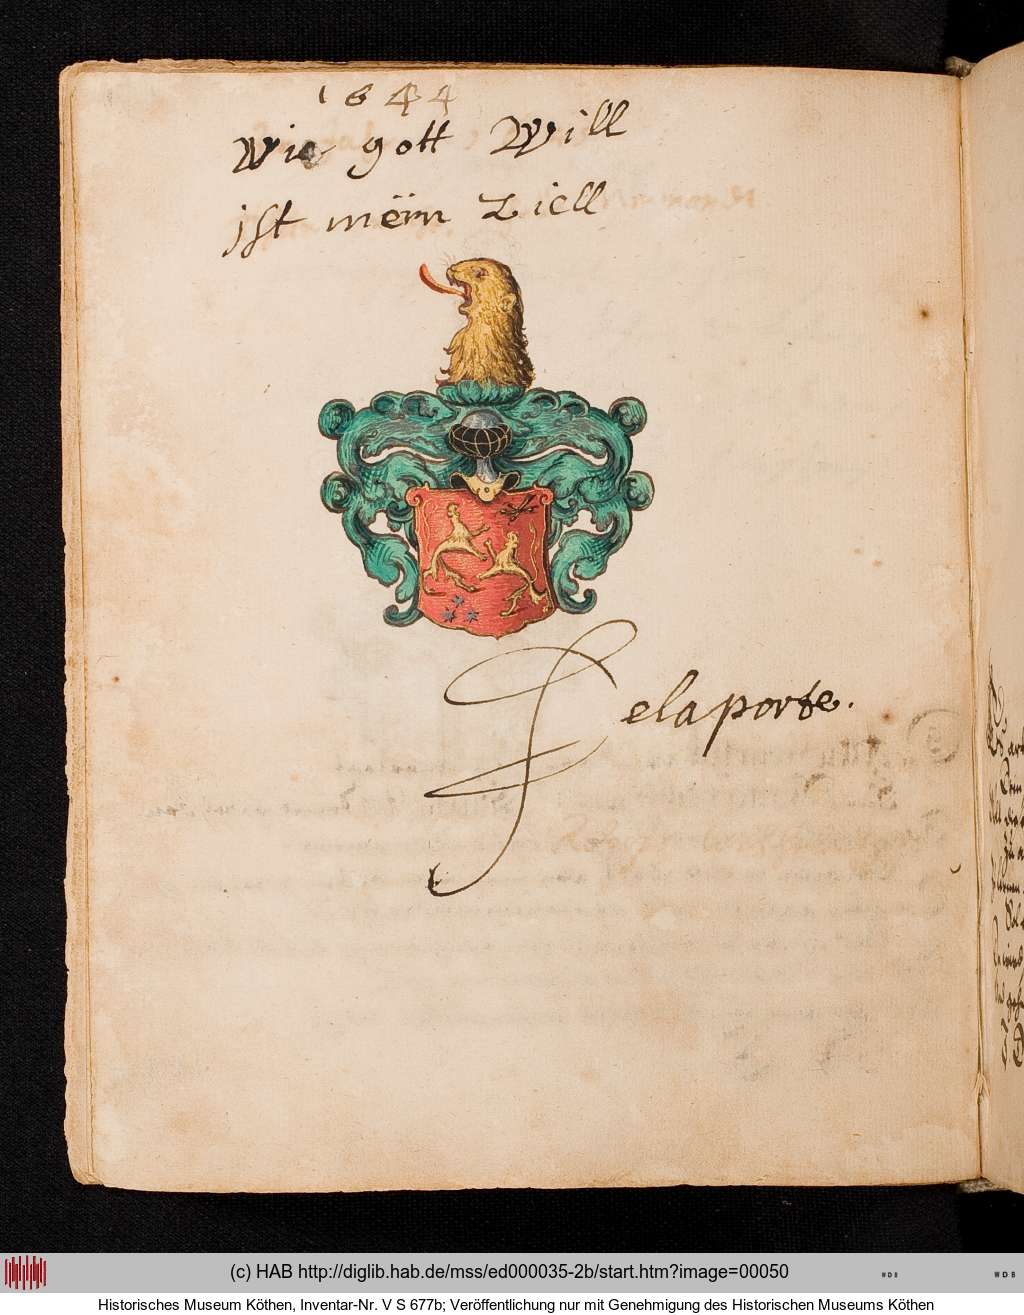 1644
Wie gott Will
ist mëin Ziell
Delaporte.
(c) HAB http://diglib.hab.de/mss/ed000035-2b/start.htm?image=00050
Historisches Museum Köthen, Inventar-Nr. V S 677b; Veröffentlichung nur mit Genehmigung des Historischen Museums Köthen